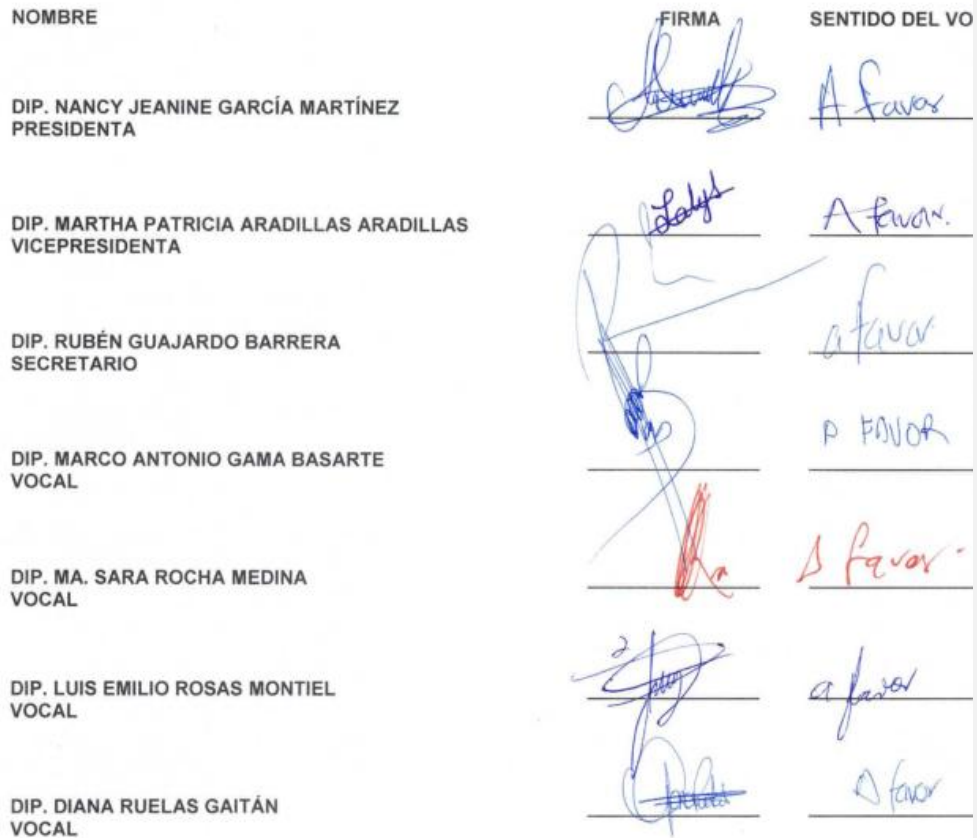 NOMBRE FIRMA SENTIDO DEL VO
DIP. NANCY JEANINE GARCÍA MARTÍNEZ
PRESIDENTA
A favor
DIP. MARTHA PATRICIA ARADILLAS ARADILLAS
VICEPRESIDENTA
A favor.
DIP. RUBÉN GUAJARDO BARRERA
SECRETARIO
a favor
DIP. MARCO ANTONIO GAMA BASARTE
VOCAL
A FAVOR
DIP. MA. SARA ROCHA MEDINA
VOCAL
A favor
DIP. LUIS EMILIO ROSAS MONTIEL
VOCAL
a favor
DIP. DIANA RUELAS GAITÁN
VOCAL
A favor